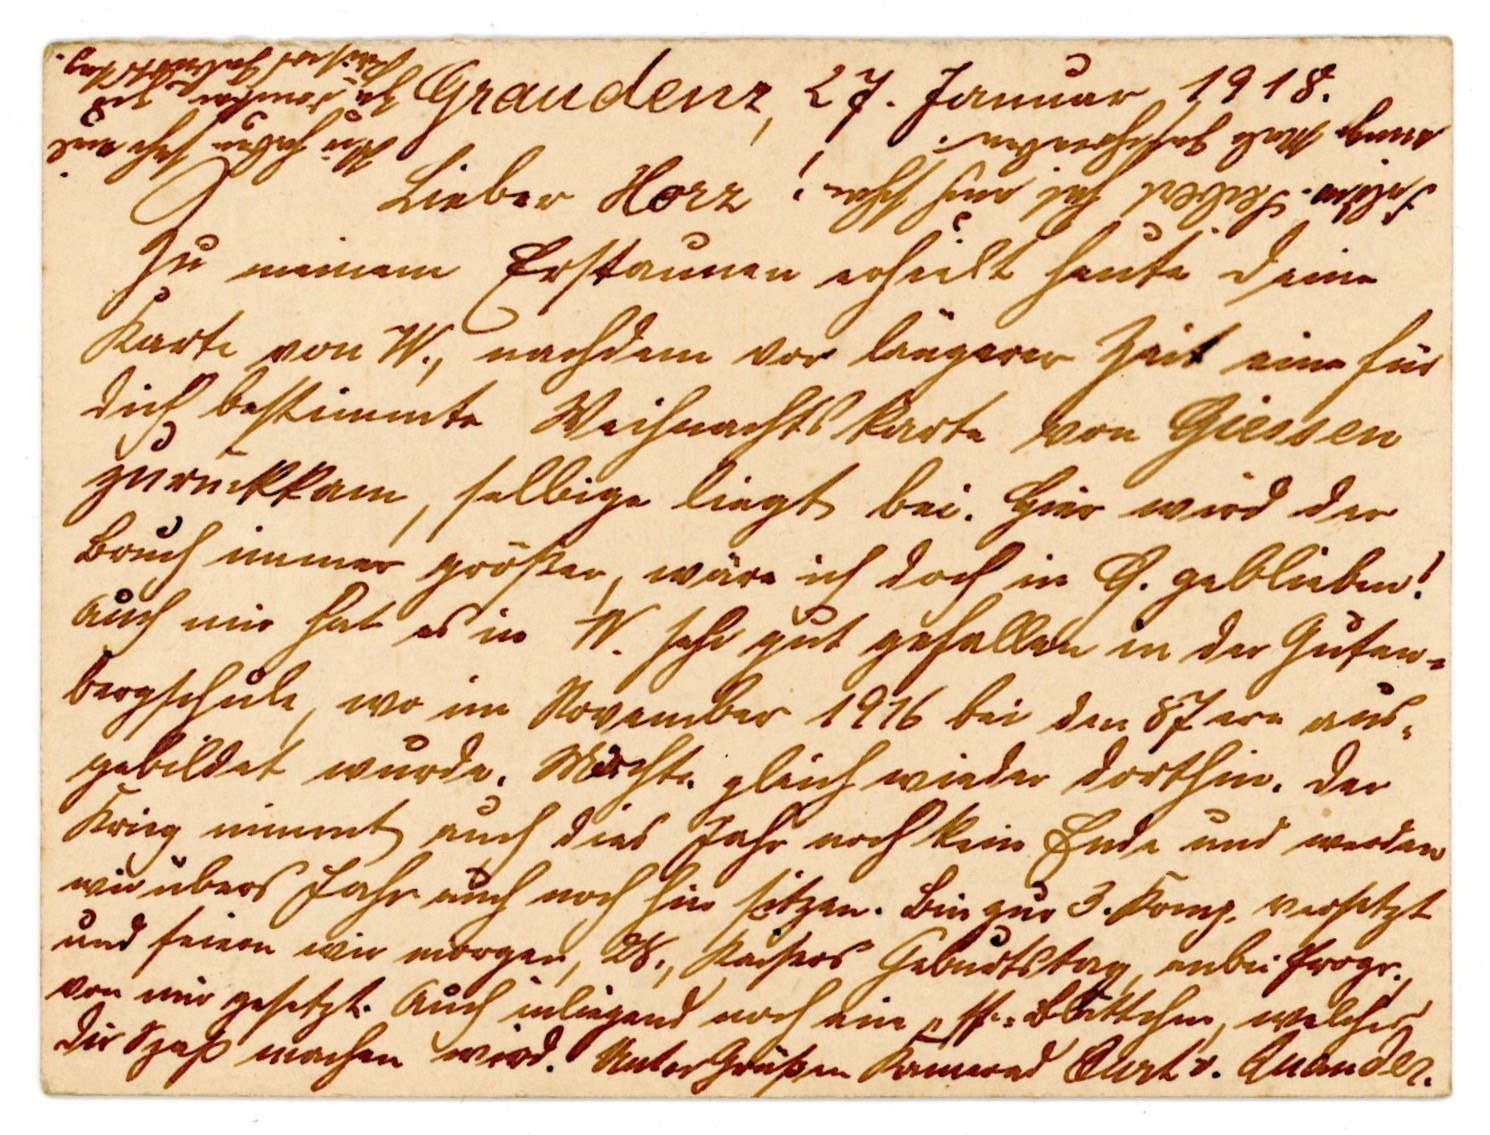 Graudenz, 27. Januar 1918.
Lieber Horz!
Zu meinem Erstaunen erhielt heute Deine
Karte von W., nachdem vor längerer Zeit eine für
Dich bestimmte Weihnachtskarte von Giessen
zurückkam, selbige liegt bei. Hier wird der
Bruch immer größer, wäre ich doch in G. geblieben!
Auch mir hat es in W. sehr gut gefallen in der Guten-
bergschule, wo im November 1916 bei den 87ern aus-
gebildet wurde. Möchte gleich wieder dorthin. Der
Krieg nimmt auch dies Jahr noch kein Ende und werden
wir übers Jahr auch noch hier sitzen. Bin zur 3. Komp. versetzt
und feiern wir morgen, 28., Kaisers Geburtstag, anbei Progr.,
von mir gesetzt. Auch inliegend noch ein Blättchen, welches
Dir Spaß machen wird. Unter Grüßen Kamerad Curt v. Quander.
Seibert hat auch schon